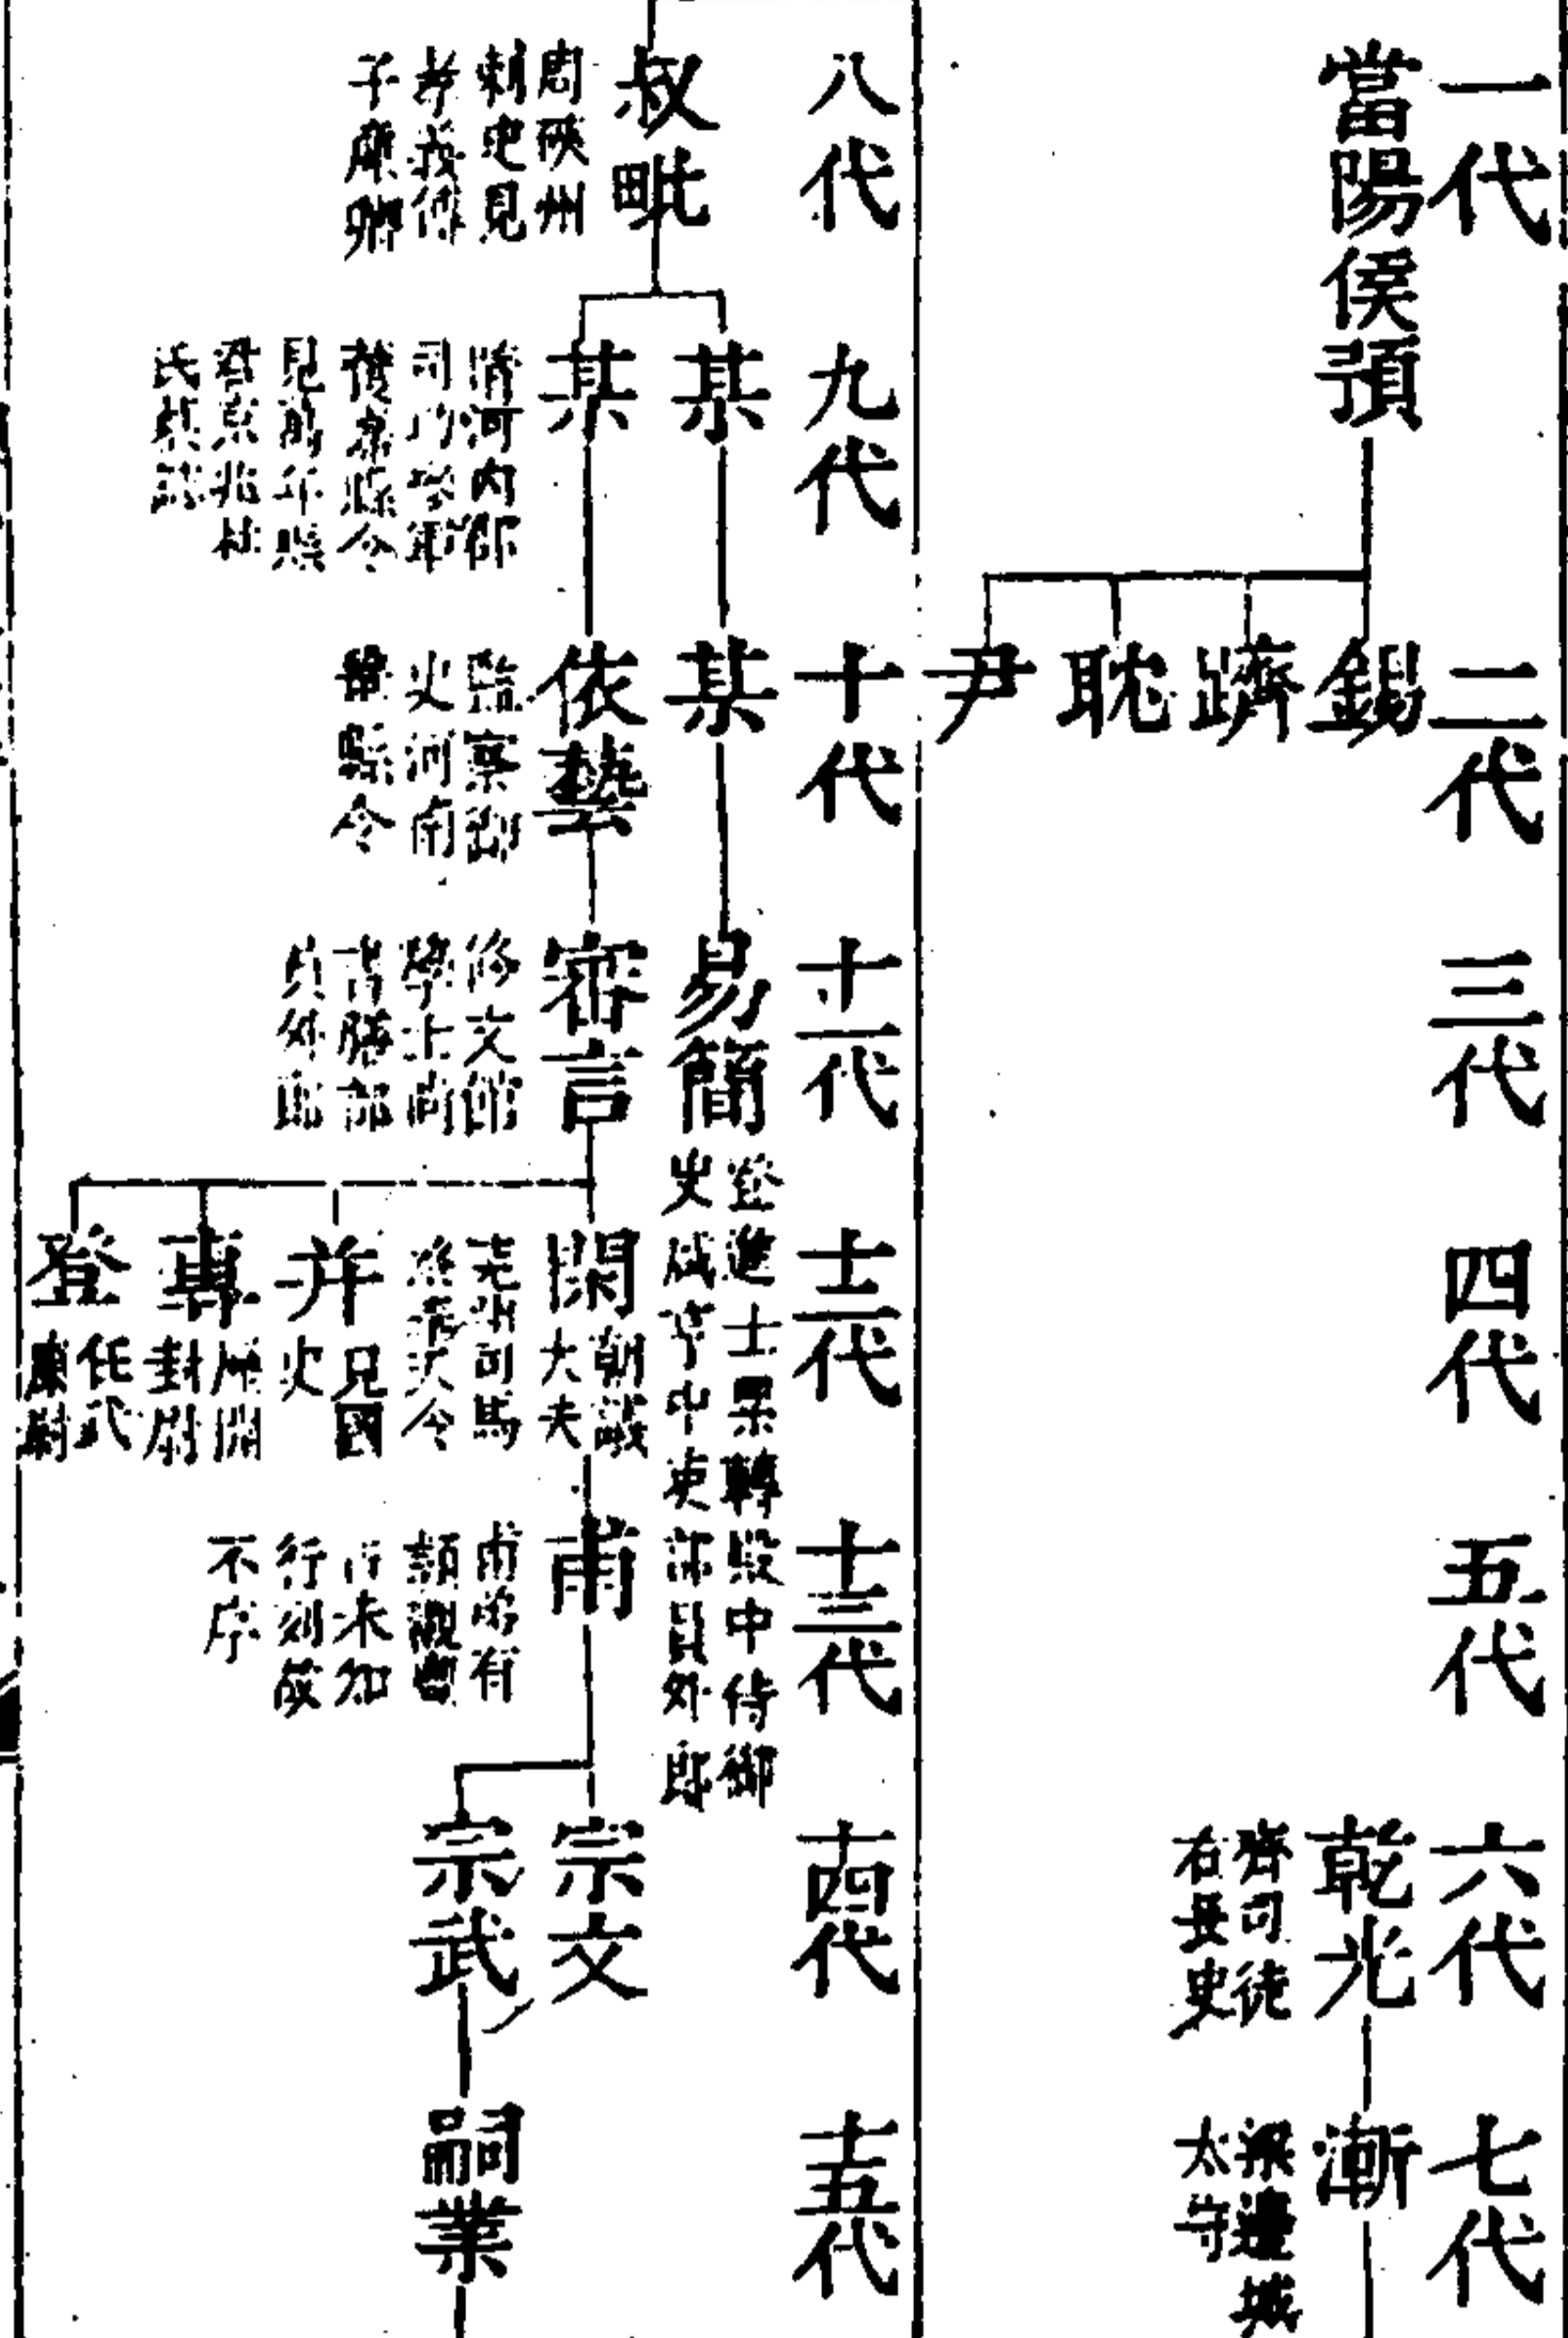 一代
當陽侯預
二代
錫
躋
耽
尹
三代
四代
五代
六代
乾光
齊司徒
右長史
七代
漸
梁邊城
太守
八代
叔毗
周硤州
刺史見
孝義傳
子廉卿
九代
某
某
隋河內郡
司功參軍
獲嘉縣令
見前年縣
君京兆杜
氏墓誌
十代
某
依藝
監察御
史河南
鞏縣令
十一代
易簡
登進士累轉殿中侍御
史咸亨中吏部員外郎
審言
修文館
學士尚
書膳部
員外郎
十二代
閑
朝議
大夫
兗州司馬
奉天令
并
見國
史
專
歷開
封尉
登
任武
康尉
十三代
甫
甫弟有
穎觀豐
占未知
行列故
不序
十四代
宗文
宗武
十五代
嗣業